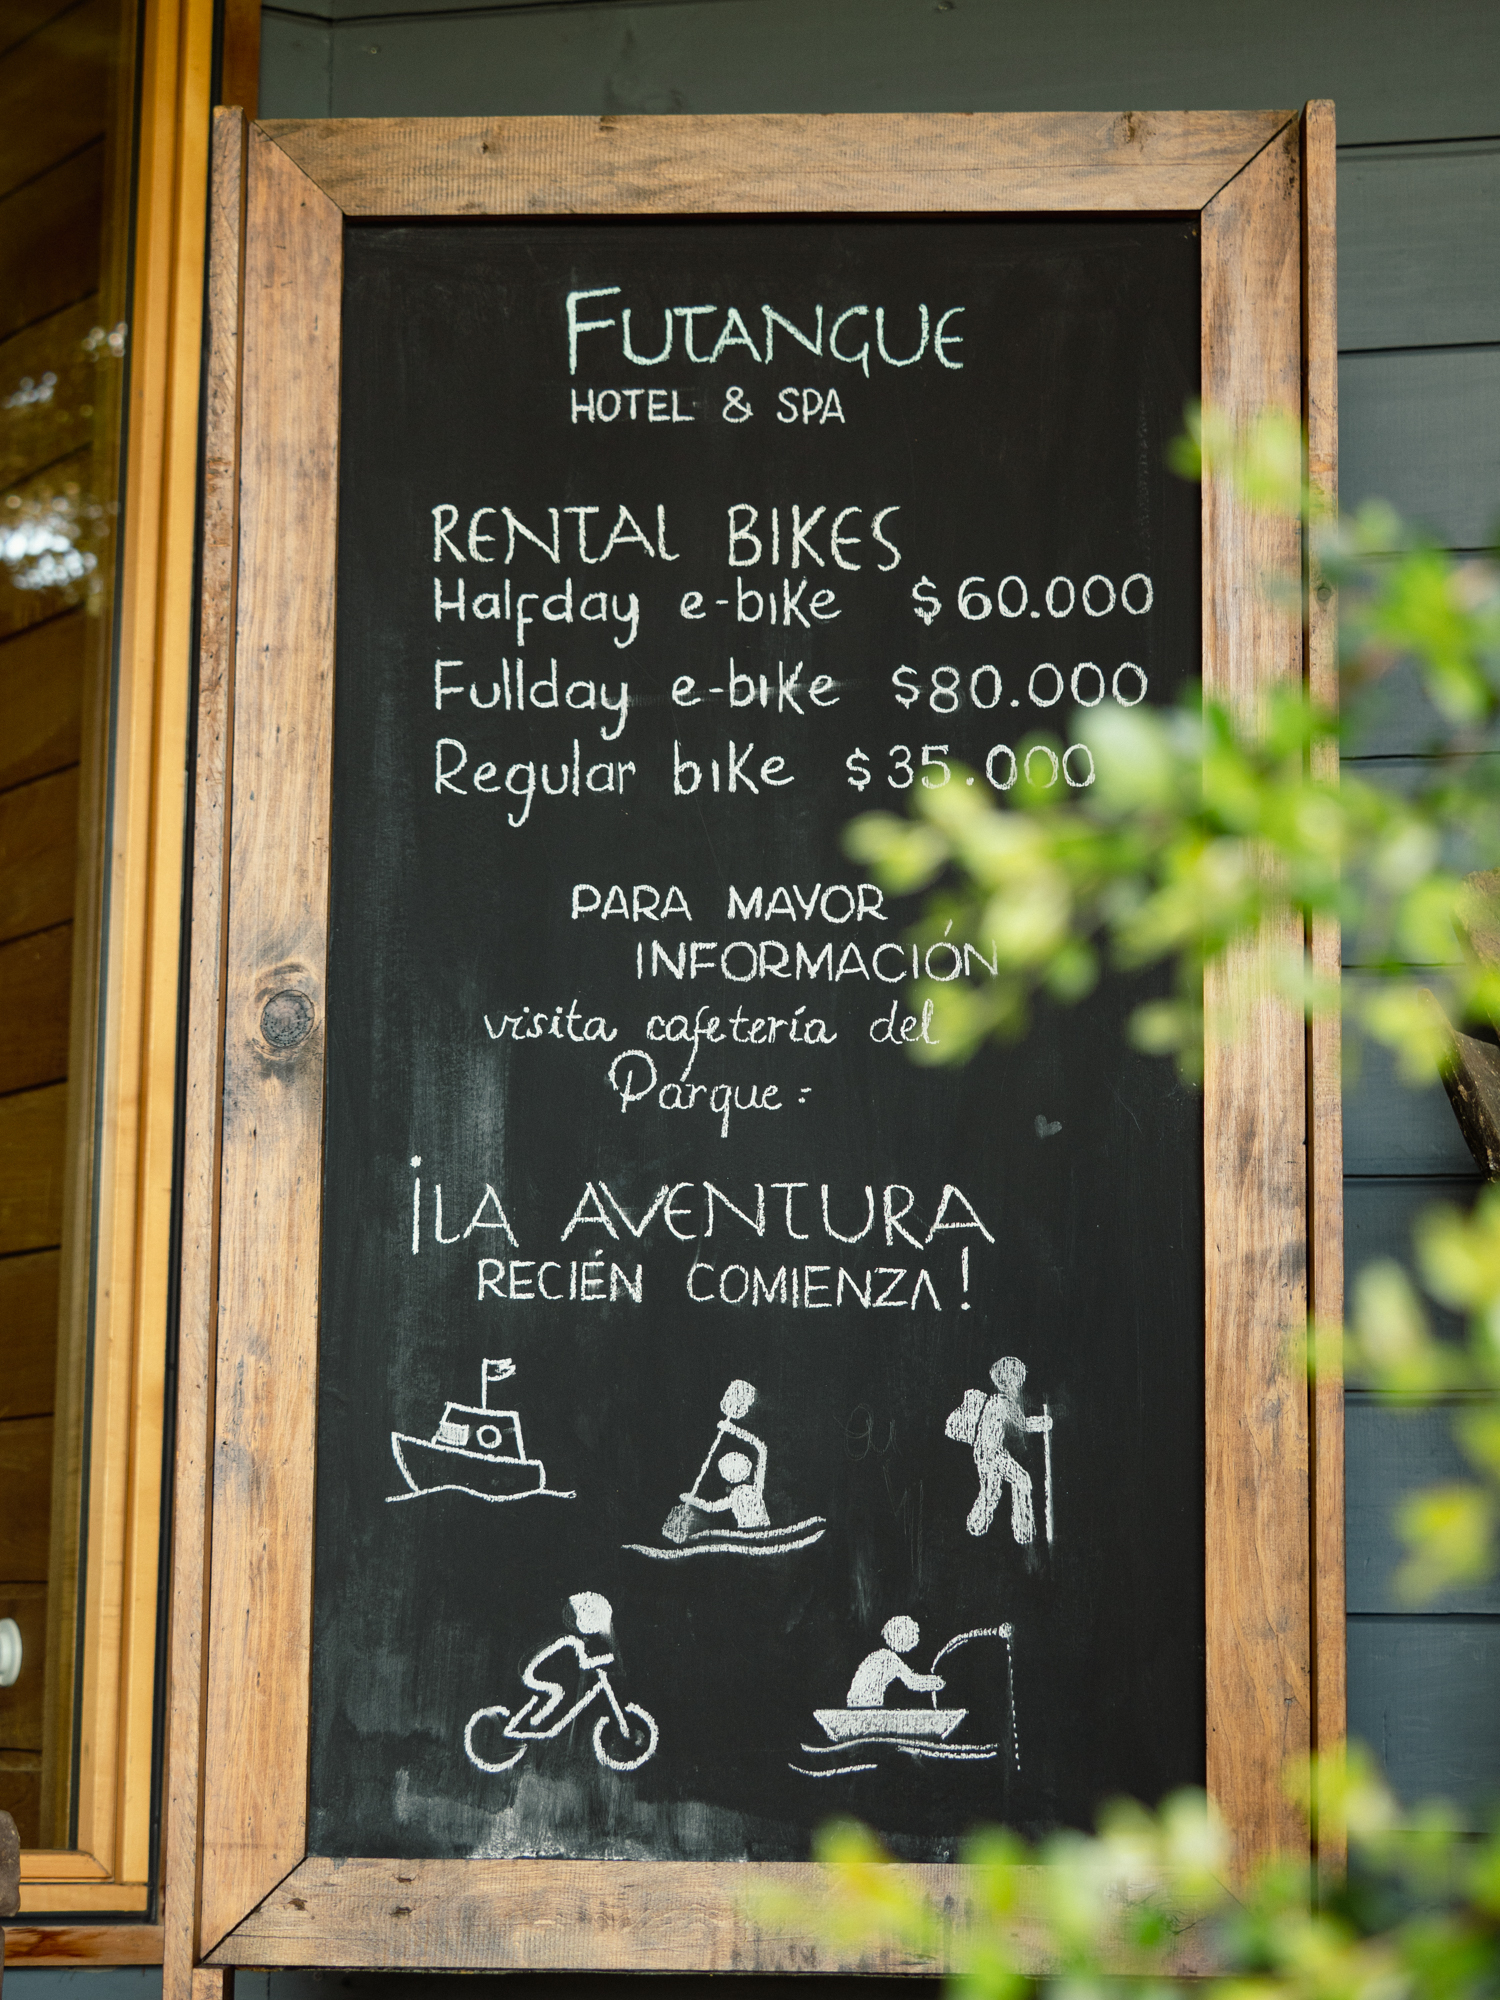 FUTANGUE
HOTEL & SPA
RENTAL BIKES
Halfday e-bike $60.000
Fullday e-bike $80.000
Regular bike $35.000
PARA MAYOR
INFORMACIÓN
visita cafetería del
Parque:
¡LA AVENTURA
RECIÉN COMIENZA!